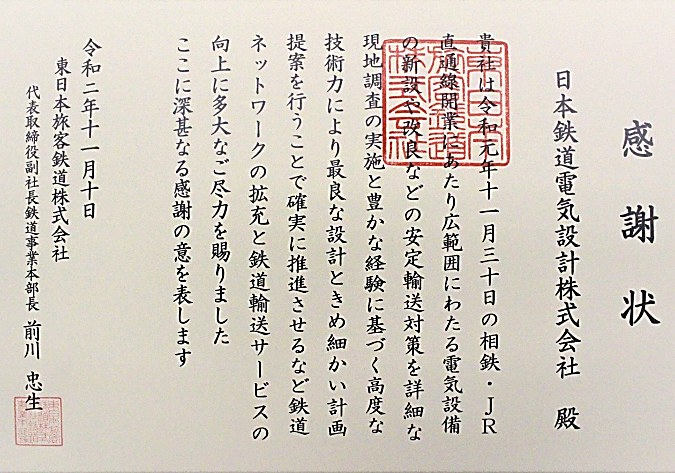 感謝状
日本鉄道電気設計株式会社 殿
貴社は令和元年十一月三十日の相鉄・JR
直通線開業にあたり広範囲にわたる電気設備
の新設や改良などの安定輸送対策を詳細な
現地調査の実施と豊かな経験に基づく高度な
技術力により最良な設計ときめ細かい計画
提案を行うことで確実に推進させるなど鉄道
ネットワークの拡充と鉄道輸送サービスの
向上に多大なご尽力を賜りました
ここに深甚なる感謝の意を表します
令和二年十一月十日
東日本旅客鉄道株式会社
代表取締役副社長鉄道事業本部長 前川 忠生